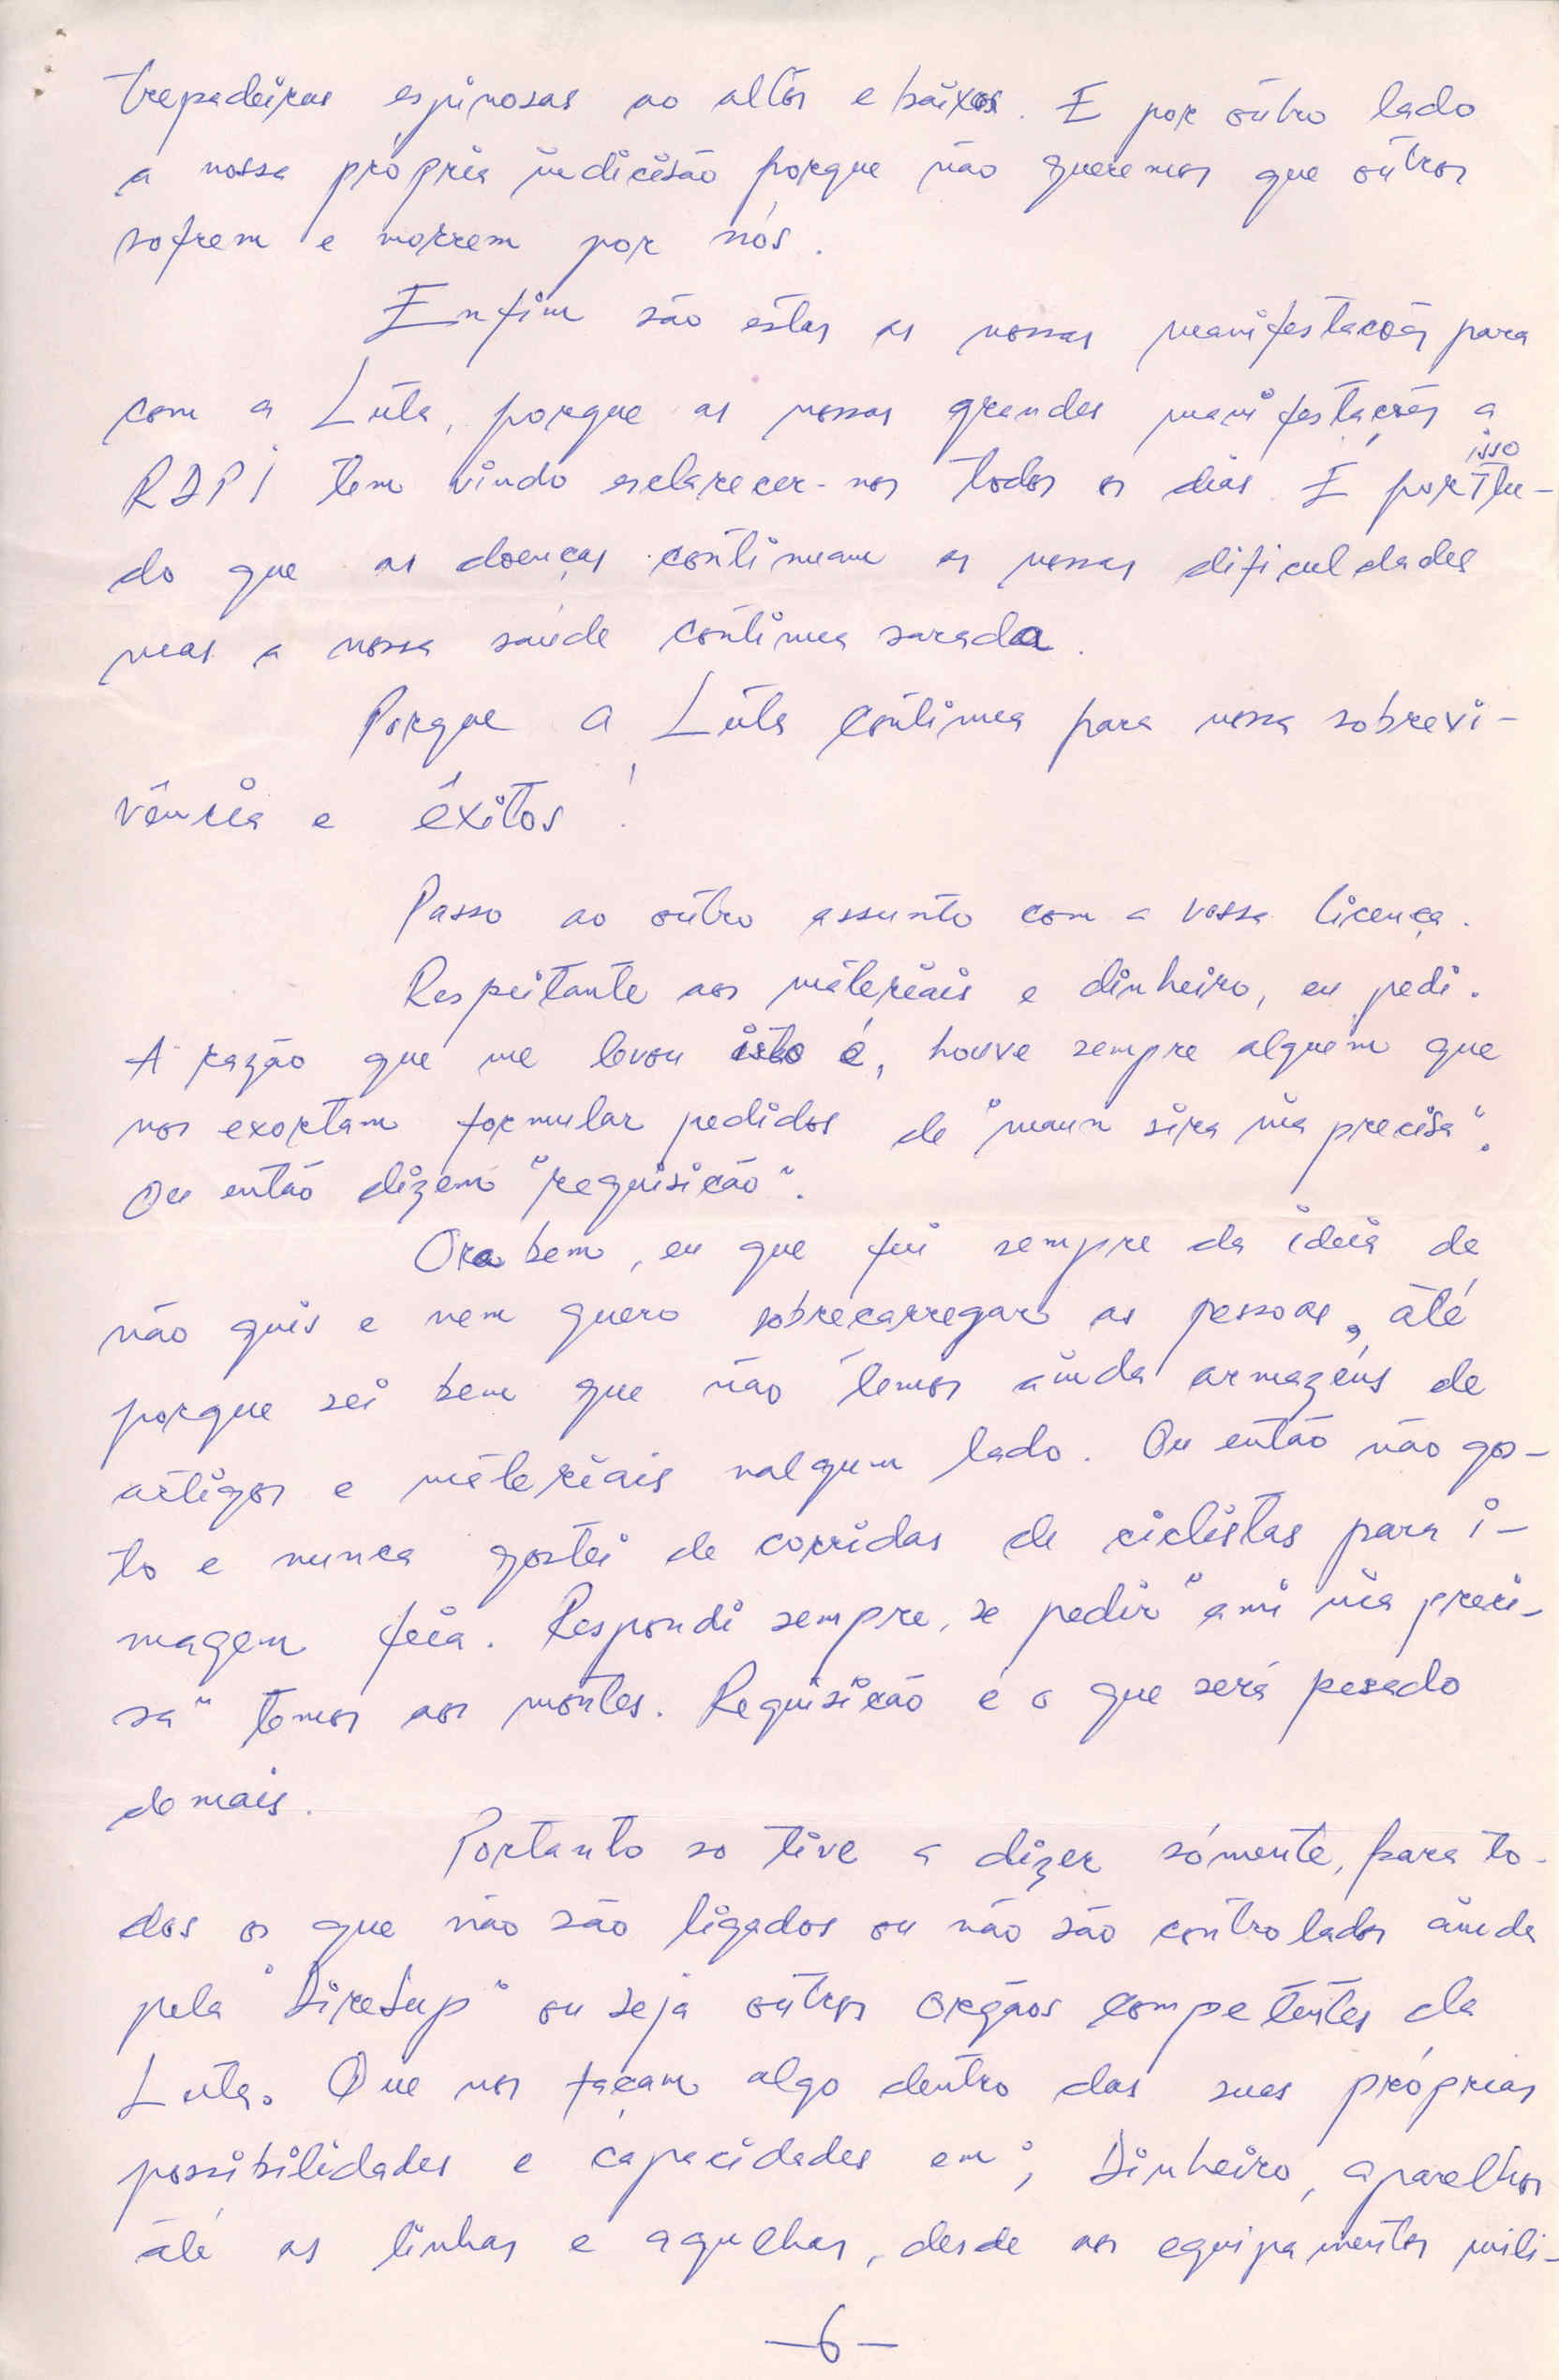 trepadeiras espinosas ao altos e baixos. E por outro lado
a nossa própria indicisão porque não queremos que outros
sofrem e morrem por nós.
Enfim são estas as nossas manifestacões para
com a Luta, porque as nossas grandes manifestações a
RDPI tem vindo esclarecer-nos todos os dias. E por isso tu-
do que as doenças continuam as nossas dificuldades
mas a nossa saúde continua sarada.
Porque a Luta continua para nossa sobrevi-
vência e êxitos!
Passo ao outro assunto com a vossa licença.
Respeitante aos materiais e dinheiro, eu pedi.
A razão que me levou isto é, houve sempre alguém que
nos exortam formular pedidos de "maun sira nia precisa".
Ou então dizem "requisicão".
Ora bem, eu que fui sempre da ideia de
não quis e nem quero sobrecarregar as pessoas, até
porque sei bem que não temos ainda armazéns de
artigos e materiais nalgum lado. Ou então não gos-
to e nunca gostei de corridas de ciclistas para i-
magem feia. Respondi sempre, se pedir "ami nia preci-
sa" temos aos montes. Requisicão é o que será pesado
demais.
Portanto so tive a dizer sómente, para to-
dos os que não são ligados ou não são controlados ainda
pela "DireSup" ou seja outros orgãos competentes da
Luta. Que nos façam algo dentro das suas próprias
possibilidades e capacidades em; Dinheiro, aparelhos
até as linhas e agulhas, desde aos equipamentos mili-
-6-